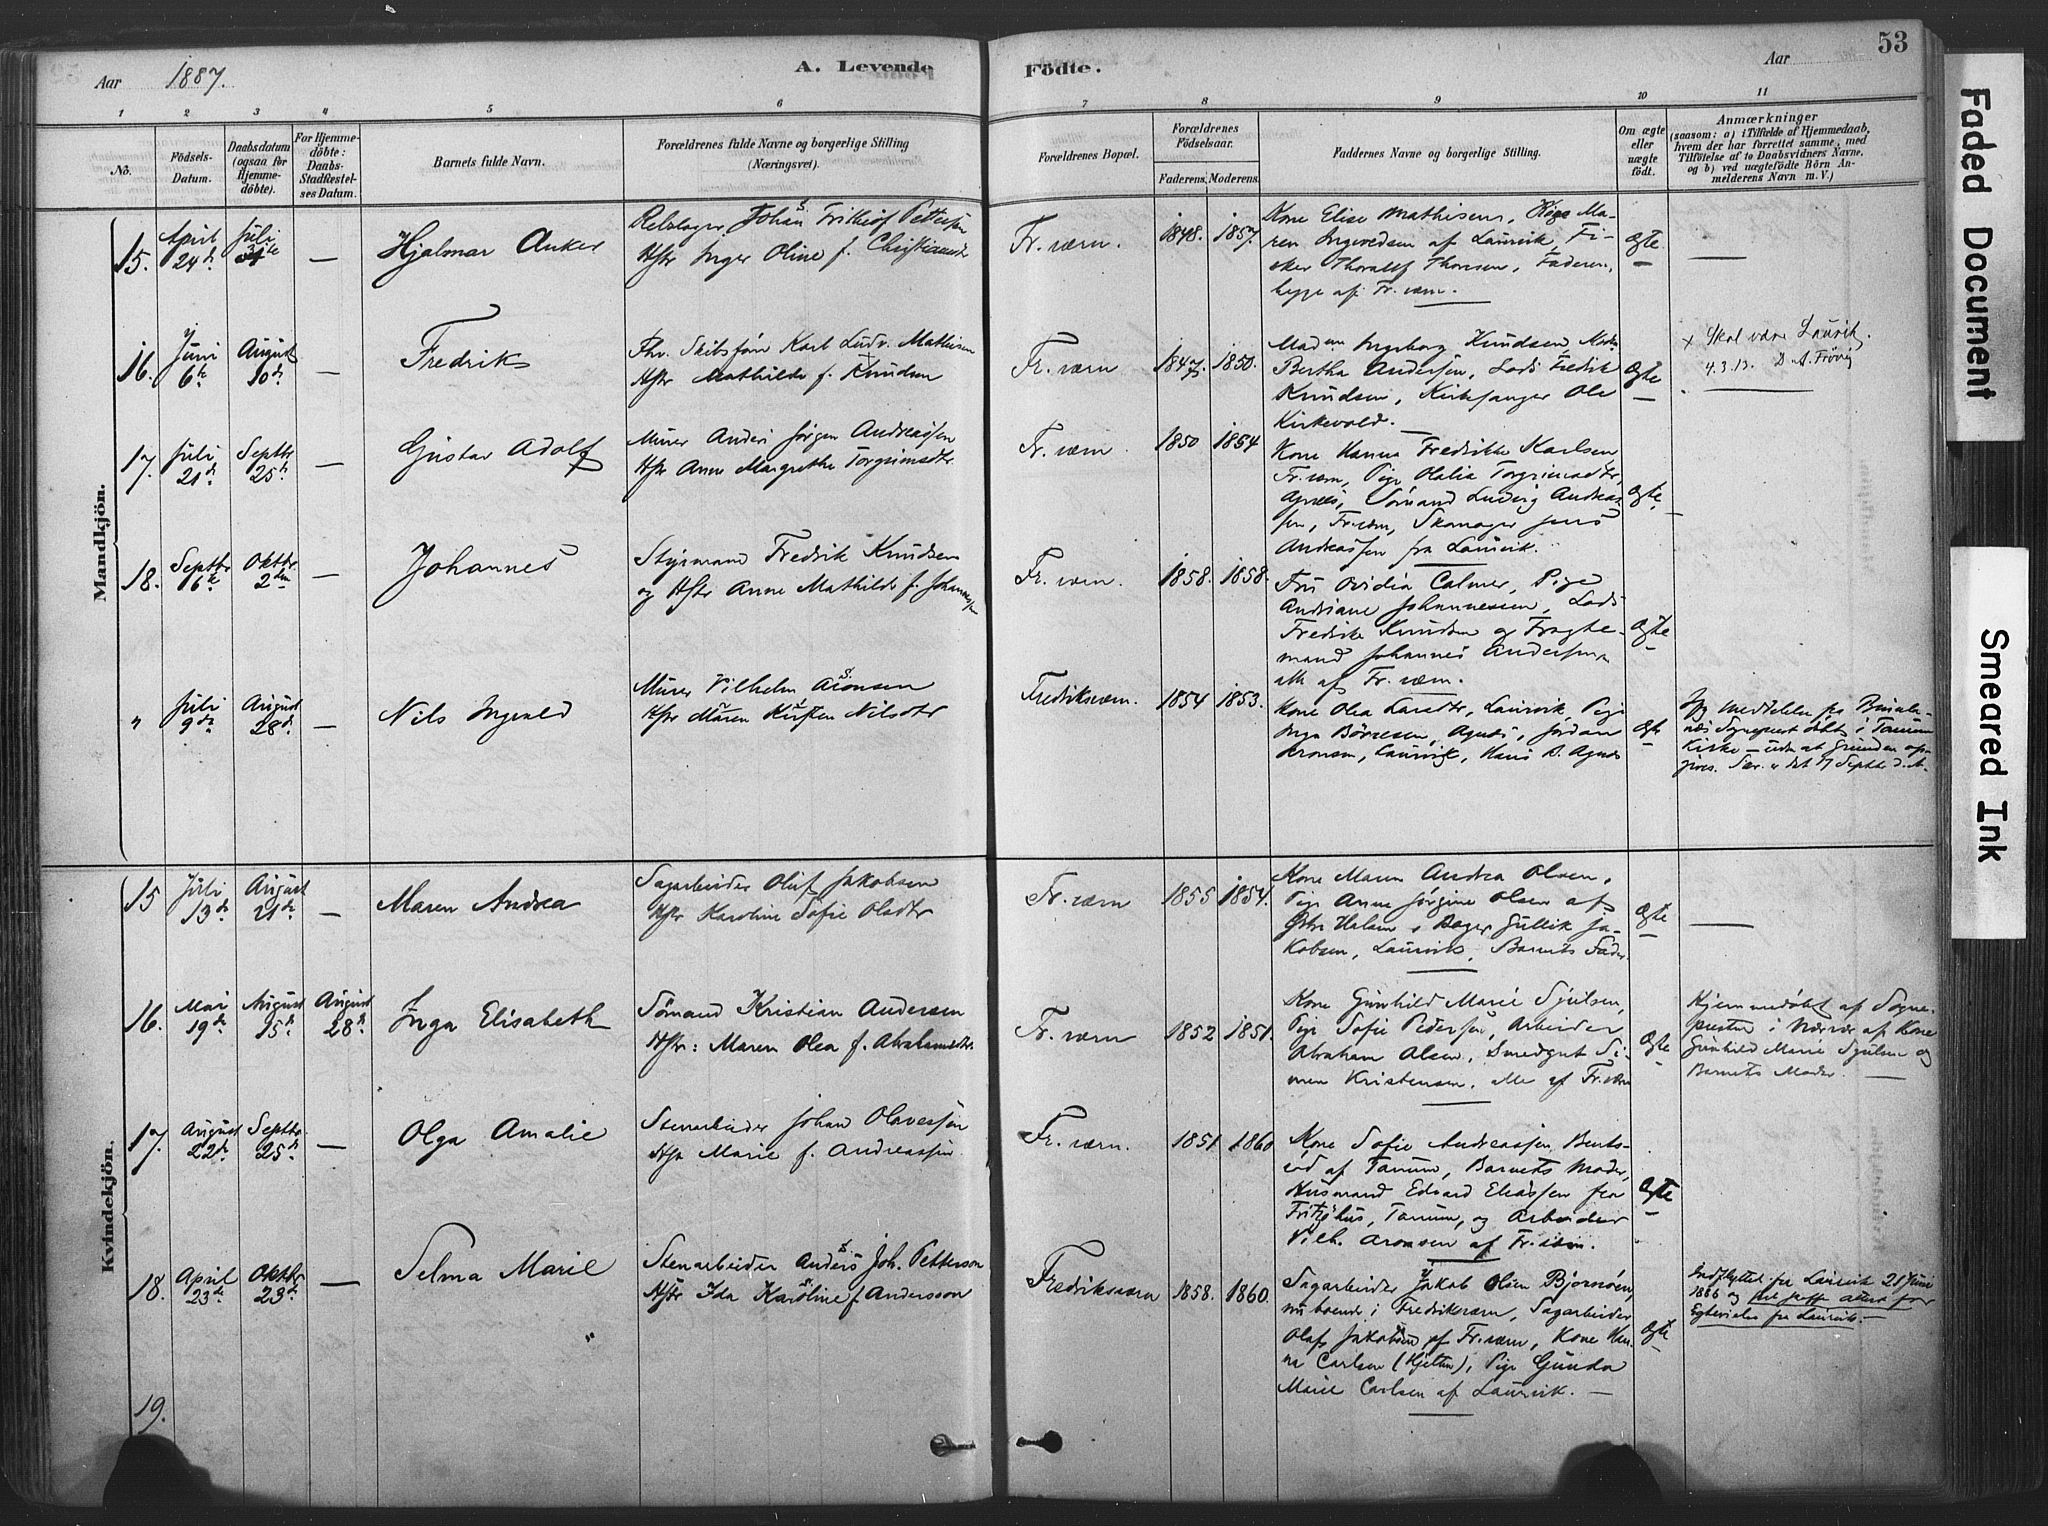 53
Aar 1887.
A. Levende Födte.
Aar
1 2 3 4 5 6 7 8 9 10 11
No.
Födsels-
Datum.
Daabsdatum
(ogsaa for
Hjemme-
döbte).
For Hjemme-
döbte:
Daabs-
Stadfæstel-
ses Datum.
Barnets fulde Navn.
Forældrenes fulde Navne og borgerlige Stilling
(Næringsvei).
Forældrenes Bopæl.
Forældrenes
Födselsaar.
Faderens. Moderens.
Faddernes Navne og borgerlige Stilling.
Om ægte
eller
uægte
födt.
Anmærkninger
(saasom: a) i Tilfælde af Hjemmedaab,
hvem der har forrettet samme, med
Tilföielse af to Daabsvidners Navne,
og b) ved uægtefödte Börn An-
melderens Navn m. V.)
Mandkjön.
15. April 24d Juli — Hjalmar Anker
Johan Fritheof Pettersen
Hstr Inger Oline f.
Fr. værn. 1848. 1857.
Kone Elise Mathisen, Ma-
ren Ingvedsen af Laurvik, Fi-
sker Thoralf Thorsen, Faderen,
begge af Fr. værn.
Ægte —
16. Juni 6te August 10de — Fredrik
Skibstøm Karl Ludv. Mathisen
Hstr Mathilde f. Knudsen
Fr. værn 1847. 1850.
Madm Ingeborg Knudsen
Bertha Andersen, Lods Fredrik
Knudsen, Kirkesanger Ole
Kirkevold.
Ægte
x Skal være Laurik.
4.3.13. D. A. Frøvig
17. Juli 21d Septbr 25d — Gustav Adolf
Murer Anders Jørgen Andreassen
Hstr Anne Margrethe Torgrimsdtr.
Fr. værn 1850 1854
Kone Hanna Fredrikke Karlsen
Fr. værn, Pige Olalia Torgrimsdtr,
Agnes, Sømand Ludvig Andreas-
sen, Fr. værn, Skomager Jens
Andreassen fra Laurvik.
Ægte
18. Septbr 16de Oktbr 2den — Johannes
Styrmand Fredrik Knudsen
og Hstr Anne Mathilde f. Johannessen
Fr. værn. 1858. 1858.
Fru Ovidia Calmer, Pige
Andriane Johannessen, Lods
Fredrik Knudsen og Fragte-
mand Johannes Andersen
alle af Fr. værn.
Ægte
" Juli 9de August 28d. — Nils Ingvald
Murer Vilhelm Aronsen
Hstr Maren Kirsten Nilsdtr
Fredriksværn. 1854 1853.
Kone Olea Larsdtr, Laurvik, Pige
Inga Børresen, Agnes, Jørdan
Aronsen, Laurvik, Hans B. Agnes
Ægte
meddelelse fra
Sognepræst døbt i Tanum
Kirke — uden at Grunden op-
gives. 7 Septbr d. A.
Kvindekjön.
15 Juli 13d. August 21d. — Maren Andrea
Sagarbeider Oluf Jakobsen
Hstr Karoline Sofie Olsdtr
Fr. værn 1855 1854.
Kone Maren Andrea Olsen,
Pige Anne Jørgine Olsen af
Østre Halsen, Bager Gullik Ja-
kobsen, Laurvik, Barnets Fader
Ægte —
16. Mai 19de August 15d. August 28d Inga Elisabeth
Sømand Kristian Andersen
Hstr: Maren Olea f. Abrahamsdtr.
Fr. værn 1852 1851.
Kone Gunhild Marie Sjulsen,
Pige Sofie Pedersen, Arbeider
Abraham Olsen, Smedgut Si-
men Kristensen, alle af Fr. værn
Ægte
Hjemmedøbt af Sogne-
presten i Nærvær af Kone
Gunhild Marie Sjulsen og
Barnets Moder. —
17. August 22d. Septbr. 25d. — Olga Amalie
Stenarbeider Johan Olavessen
Hstr Marie f. Andreassen.
Fr. værn. 1851 1860
Kone Sofie Andreassen Bents-
rød af Tanum, Barnets Moder,
Husmand Edvard Eliassen fra
Fritzøhus, Tanum, og Arbeider
Vilh. Aronsen af Fr. værn.
Ægte
18. April 23de Oktbr. 23d. — Selma Marie
Stenarbeider Anders Joh. Petterson
Hstr Ida Karoline f. Andersson
Fredriksværn 1858. 1860.
Sagarbeider Jakob Olsen Bjornøen,
nu boende i Fredriksværn, Sagarbeider
Olaf Jakobsen af Fr. værn, Kone Han-
na Carlsen (Hjelten), Pige Gunda
Marie Carlsen af Laurvik. —
Ægte
Indflyttet fra Laurvik 21 Juni
1886 og
fra Laurvik. —
19.
Faded Document
Smeared Ink